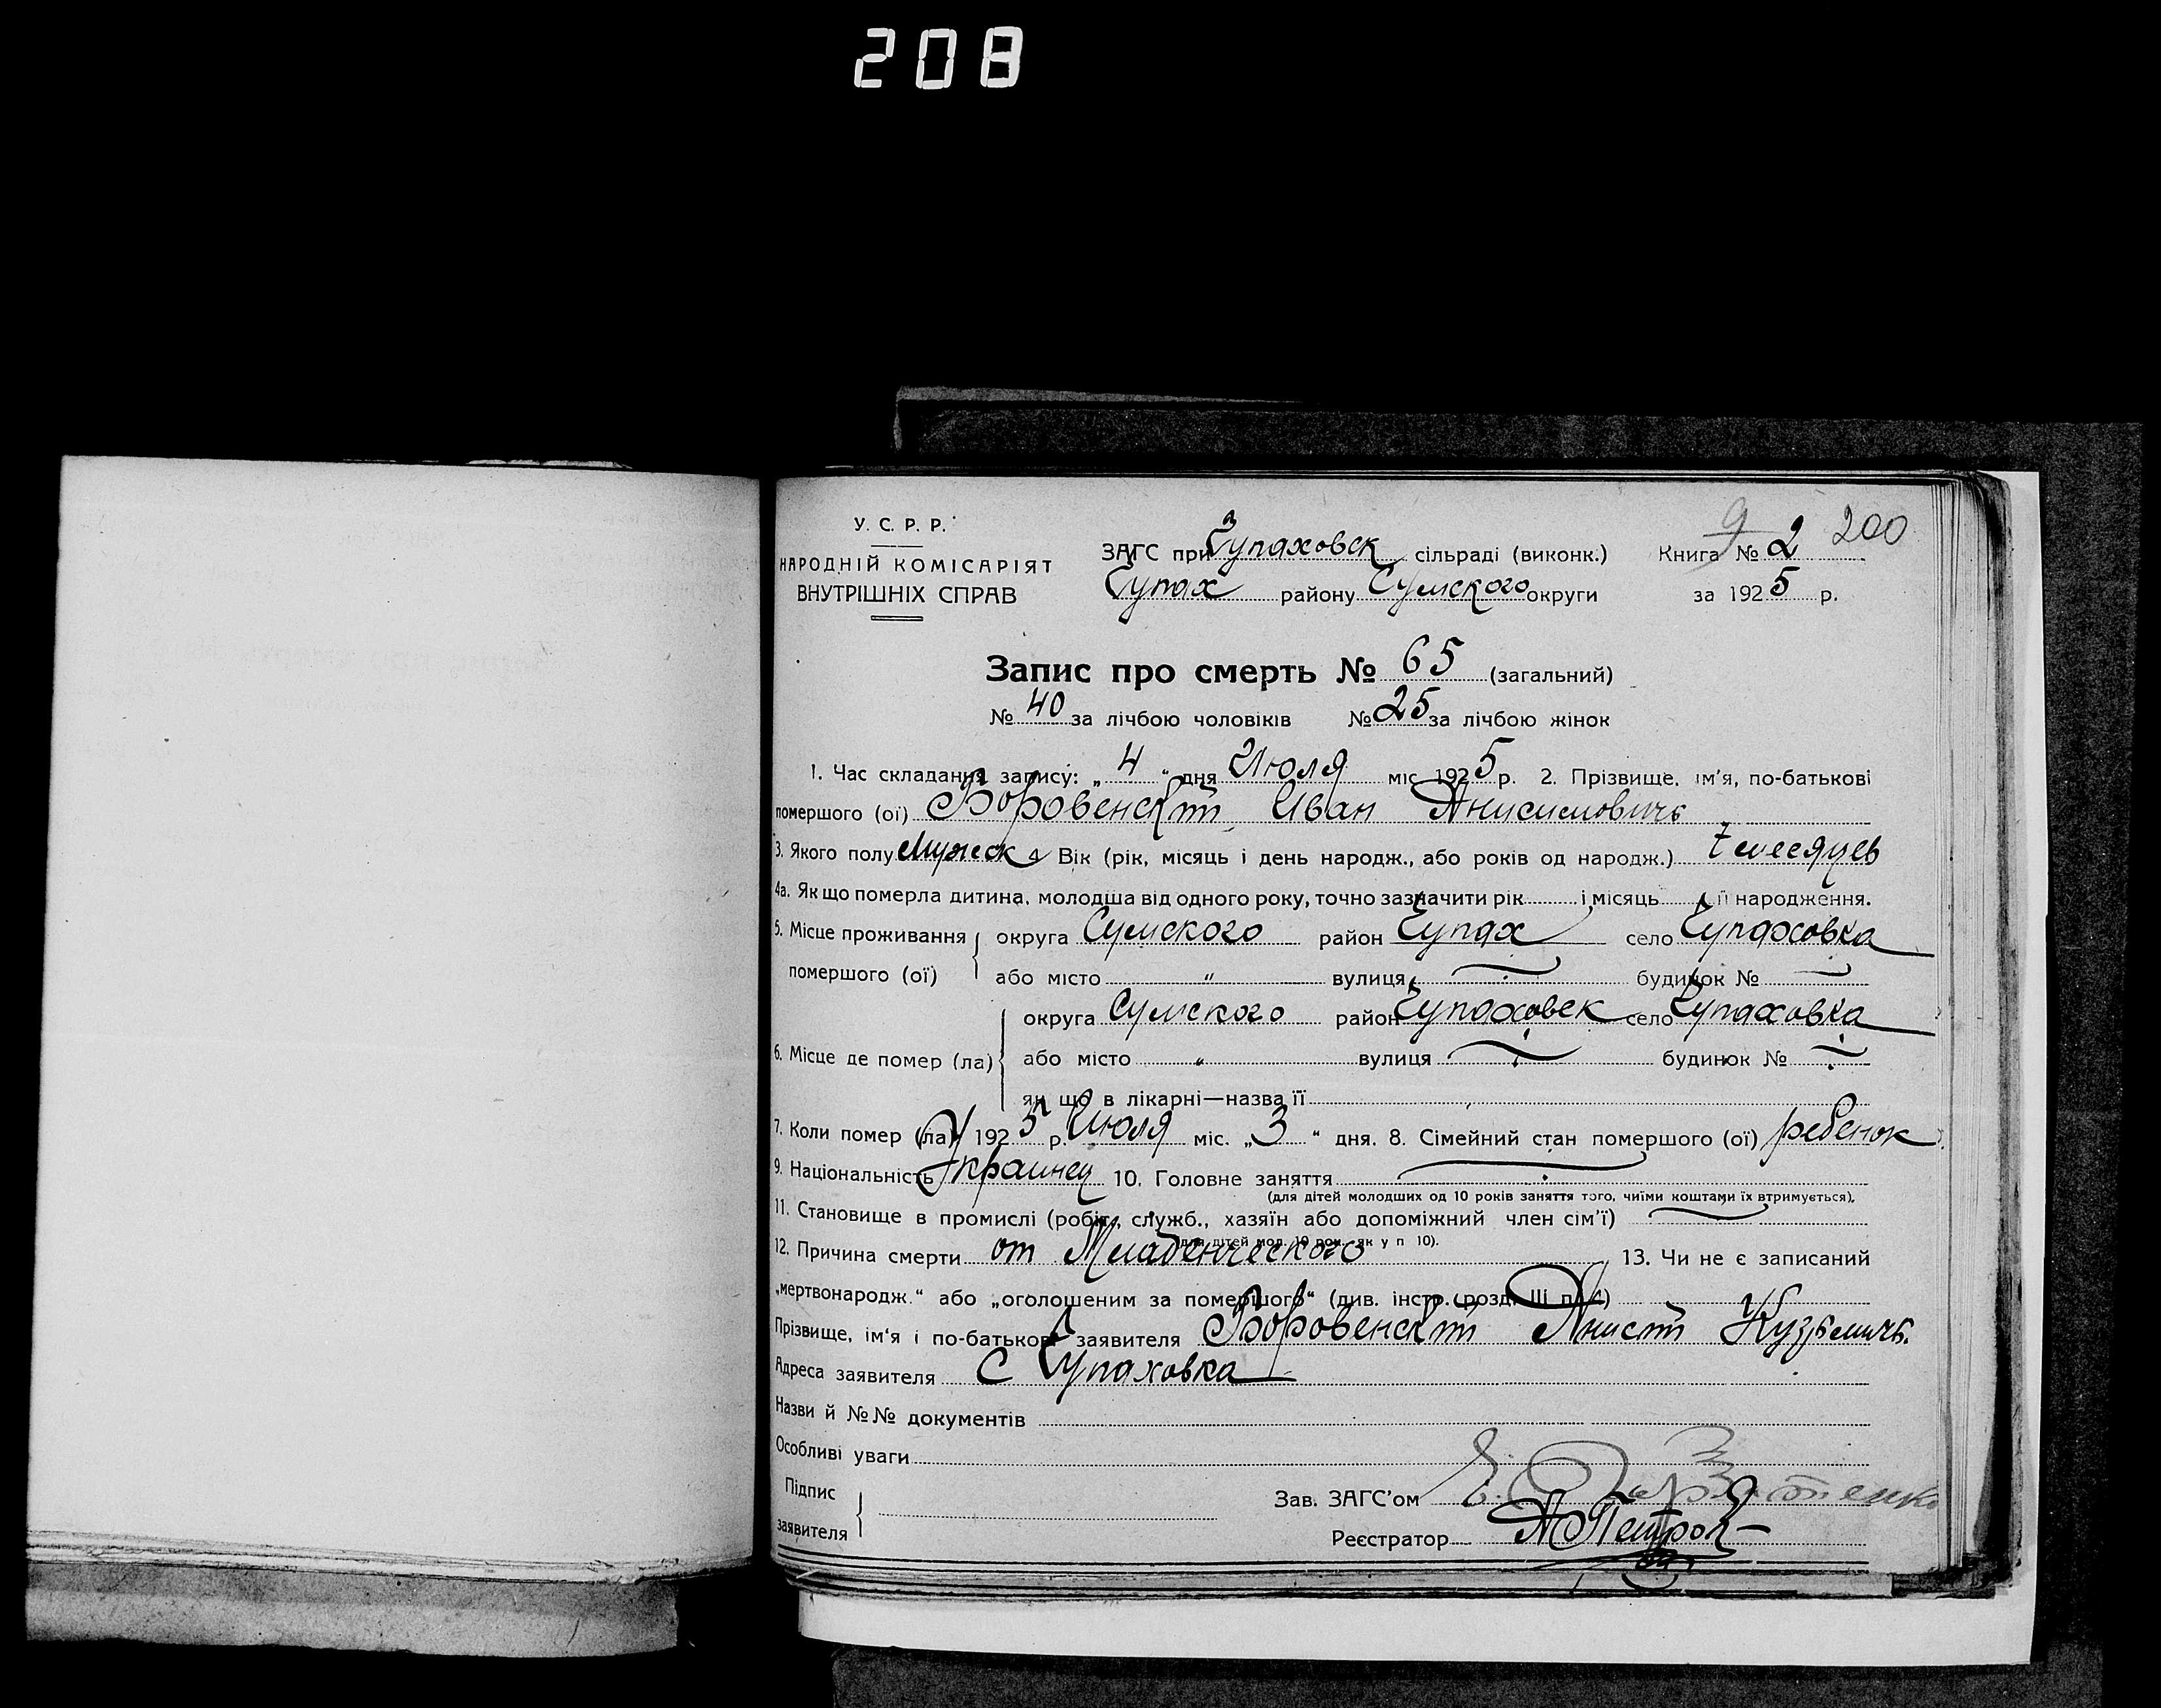 208
У. С. Р. Р.
НАРОДНІЙ КОМІСАРІЯТ
ВНУТРІШНІХ СПРАВ
ЗАГС при Чупаховск сільраді (виконк.)
Чупах району Сумского округи
9 200
Книга № 2
за 1925 р.
Запис про смерть № 65 (загальний)
№ 40 за лічбою чоловіків № 25 за лічбою жінок
1. Час складання запису: „ 4 “ дня Июля міс 1925 р. 2. Прізвище, ім’я, по-батькові
помершого (ої) Боровенскт Иван Анисимовичь
3. Якого полу Мужеск 4 Вік (рік, місяць і день народж., або років од народж.) 7 месяцев
4а. Як що померла дитина, молодша від одного року, точно зазначити рік і місяць її народження.
5. Місце проживання помершого (ої) округа Сумского район Чупах село Чупаховка
або місто „ вулиця будинок №
6. Місце де помер (ла) округа Сумского район Чупаховск село Чупаховка
або місто „ вулиця будинок №
як що в лікарні—назва її
7. Коли помер (ла) 1925 р. Июля міс. „ 3 “ дня. 8. Сімейний стан помершого (ої) ребенок
9. Національність Украинец 10. Головне заняття
(для дітей молодших од 10 років заняття того, чиїми коштами їх втримується).
11. Становище в промислі (робіт., служб., хазяїн або допоміжний член сім’ї)
(для дітей мол. 10 рок. як у п 10).
12. Причина смерти от Младенческого 13. Чи не є записаний
„мертвонародж.“ або „оголошеним за помершого“ (див. інстр. розд. III п. 4)
Прізвище, ім‘я і по-батькові заявителя Боровенскт Анист Кузьмичь.
Адреса заявителя С Чупаховка
Назви й №№ документів
Особливі уваги
Підпис заявителя
Зав. ЗАГС’ом
Реєстратор